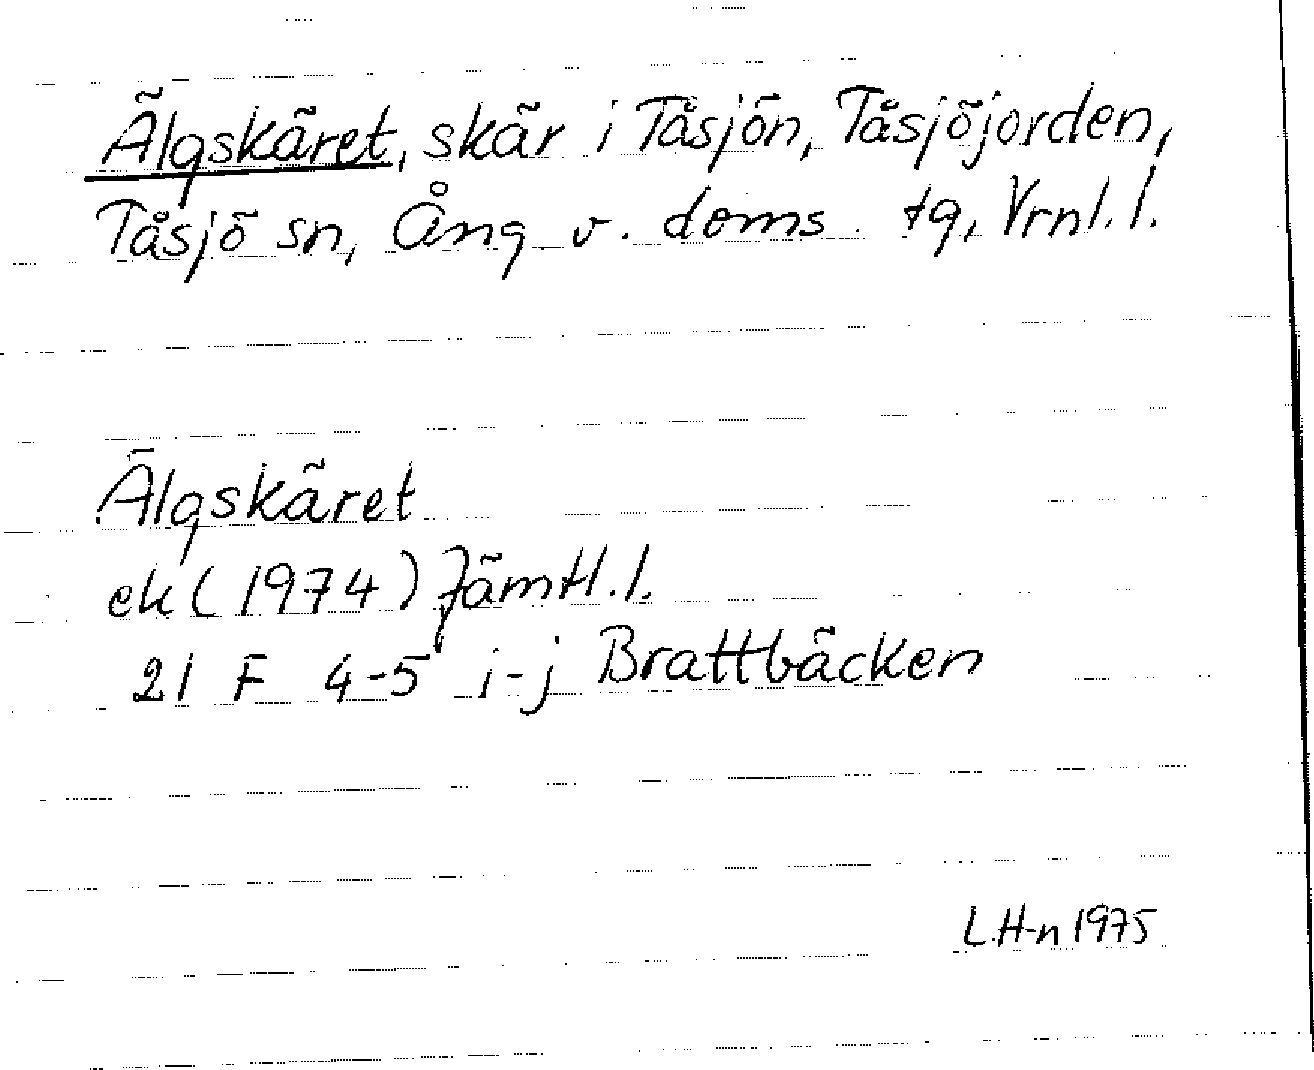 Älgskäret, skär i Tåsjön, Tåsjöjorden,
Tåsjö sn, Ång v. doms. tg, Vrnl. l.
Älgskäret
ek (1974) Jämtl. l.
21 F 4-5 i-j Brattbäcken
L.H-n 1975